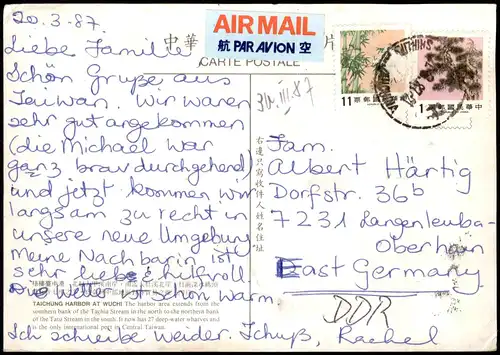 20.3.87
中華
片
AIR MAIL
航 PAR AVION 空
CARTE POSTALE
Liebe Familie
Schön Gruße aus
Taiwan. Wir waren
sehr gut angekommen
(die Michael war
ganz brav durchgehend)
und jetzt kommen wir
langsam zu recht in
unsere neue Umgebung
meine Nachbarin ist
sehr liebe & hilfvoll
Die Wetter ist schön warm.
Ich schreibe weider. Tchuß, Rachel
30.III.87
11 中華民國郵票
1 中華民國郵票
右邊只寫收件人姓名住址
Fam.
Albert Härtig
Dorfstr. 36b
7231 Langenleuba-
Oberhain
East Germany
DDR
TAICHUNG HARBOR AT WUCHI The harbor area extends from the
southern bank of the Taphia Stream in the north to the northern bank
of the Tatu Stream in the south. It now has 27 deep-water wharves and
is the only international port in Central Taiwan.